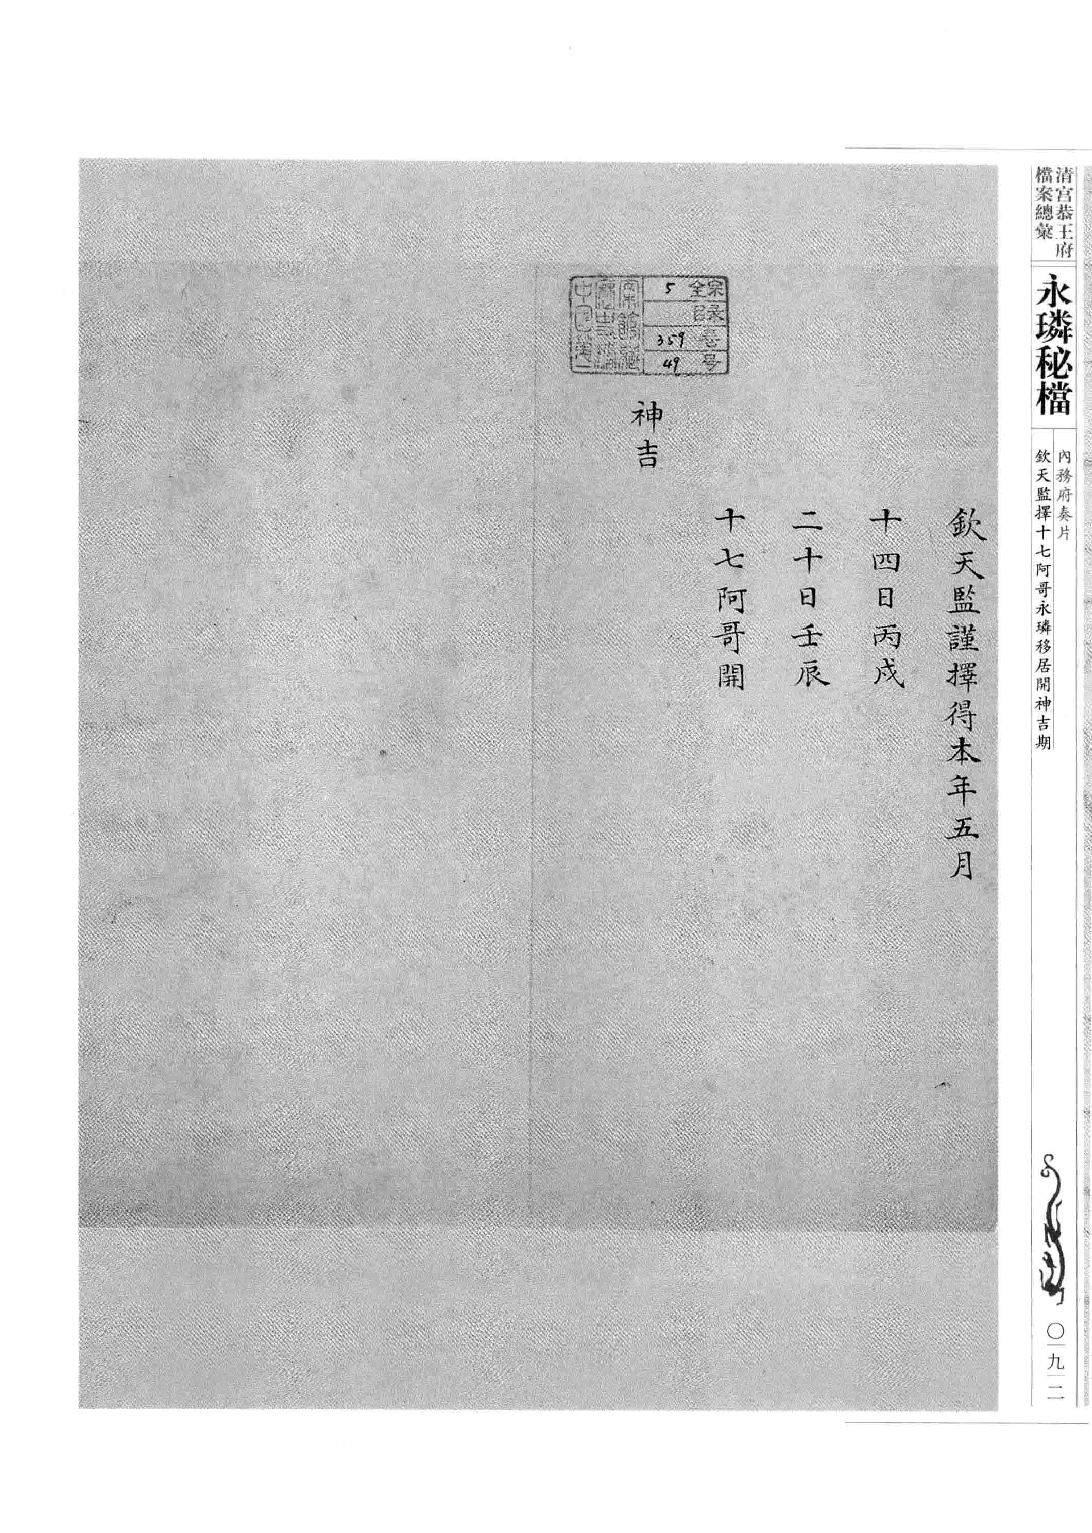 清宮恭王府
檔案總彙
永璘秘檔
內務府奏片
欽天監擇十七阿哥永璘移居開神吉期
欽天監謹擇得本年五月
十四日丙戌
二十日壬辰
十七阿哥開
神吉
全宗 5
目录
卷 359
号 49
〇九二